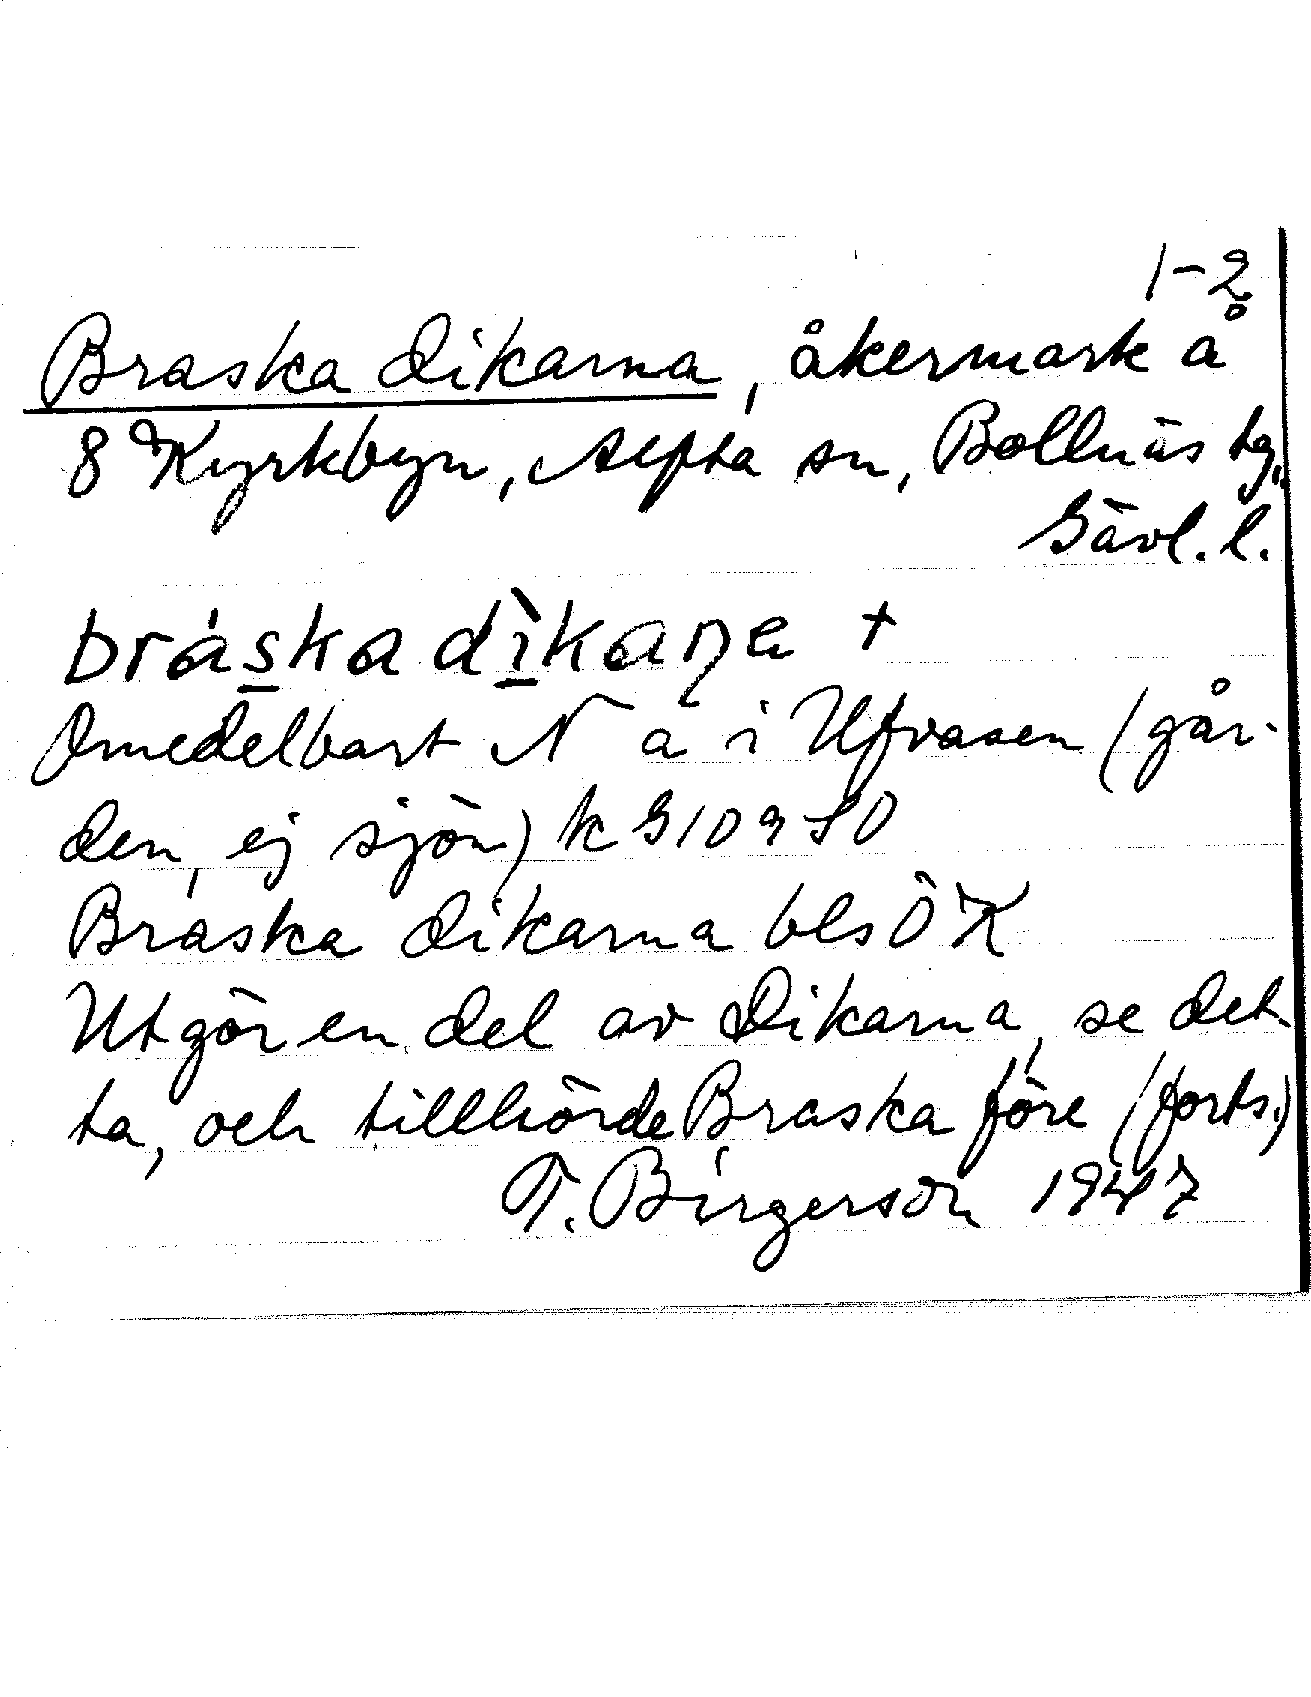 1-2
Braska dikarna, åkermark å
8 Kyrkbyn, Alfta sn, Bollnäs tg,
Gävl. l.
bráskadìkaṇa +
Omedelbart N å i Ufvasen (går-
den, ej sjön) k G10950
Braska dikarna bls ÖK
Utgör en del av Dikarna, se det-
ta, och tillhörde Braska före (forts.)
T. Birgerson 1947